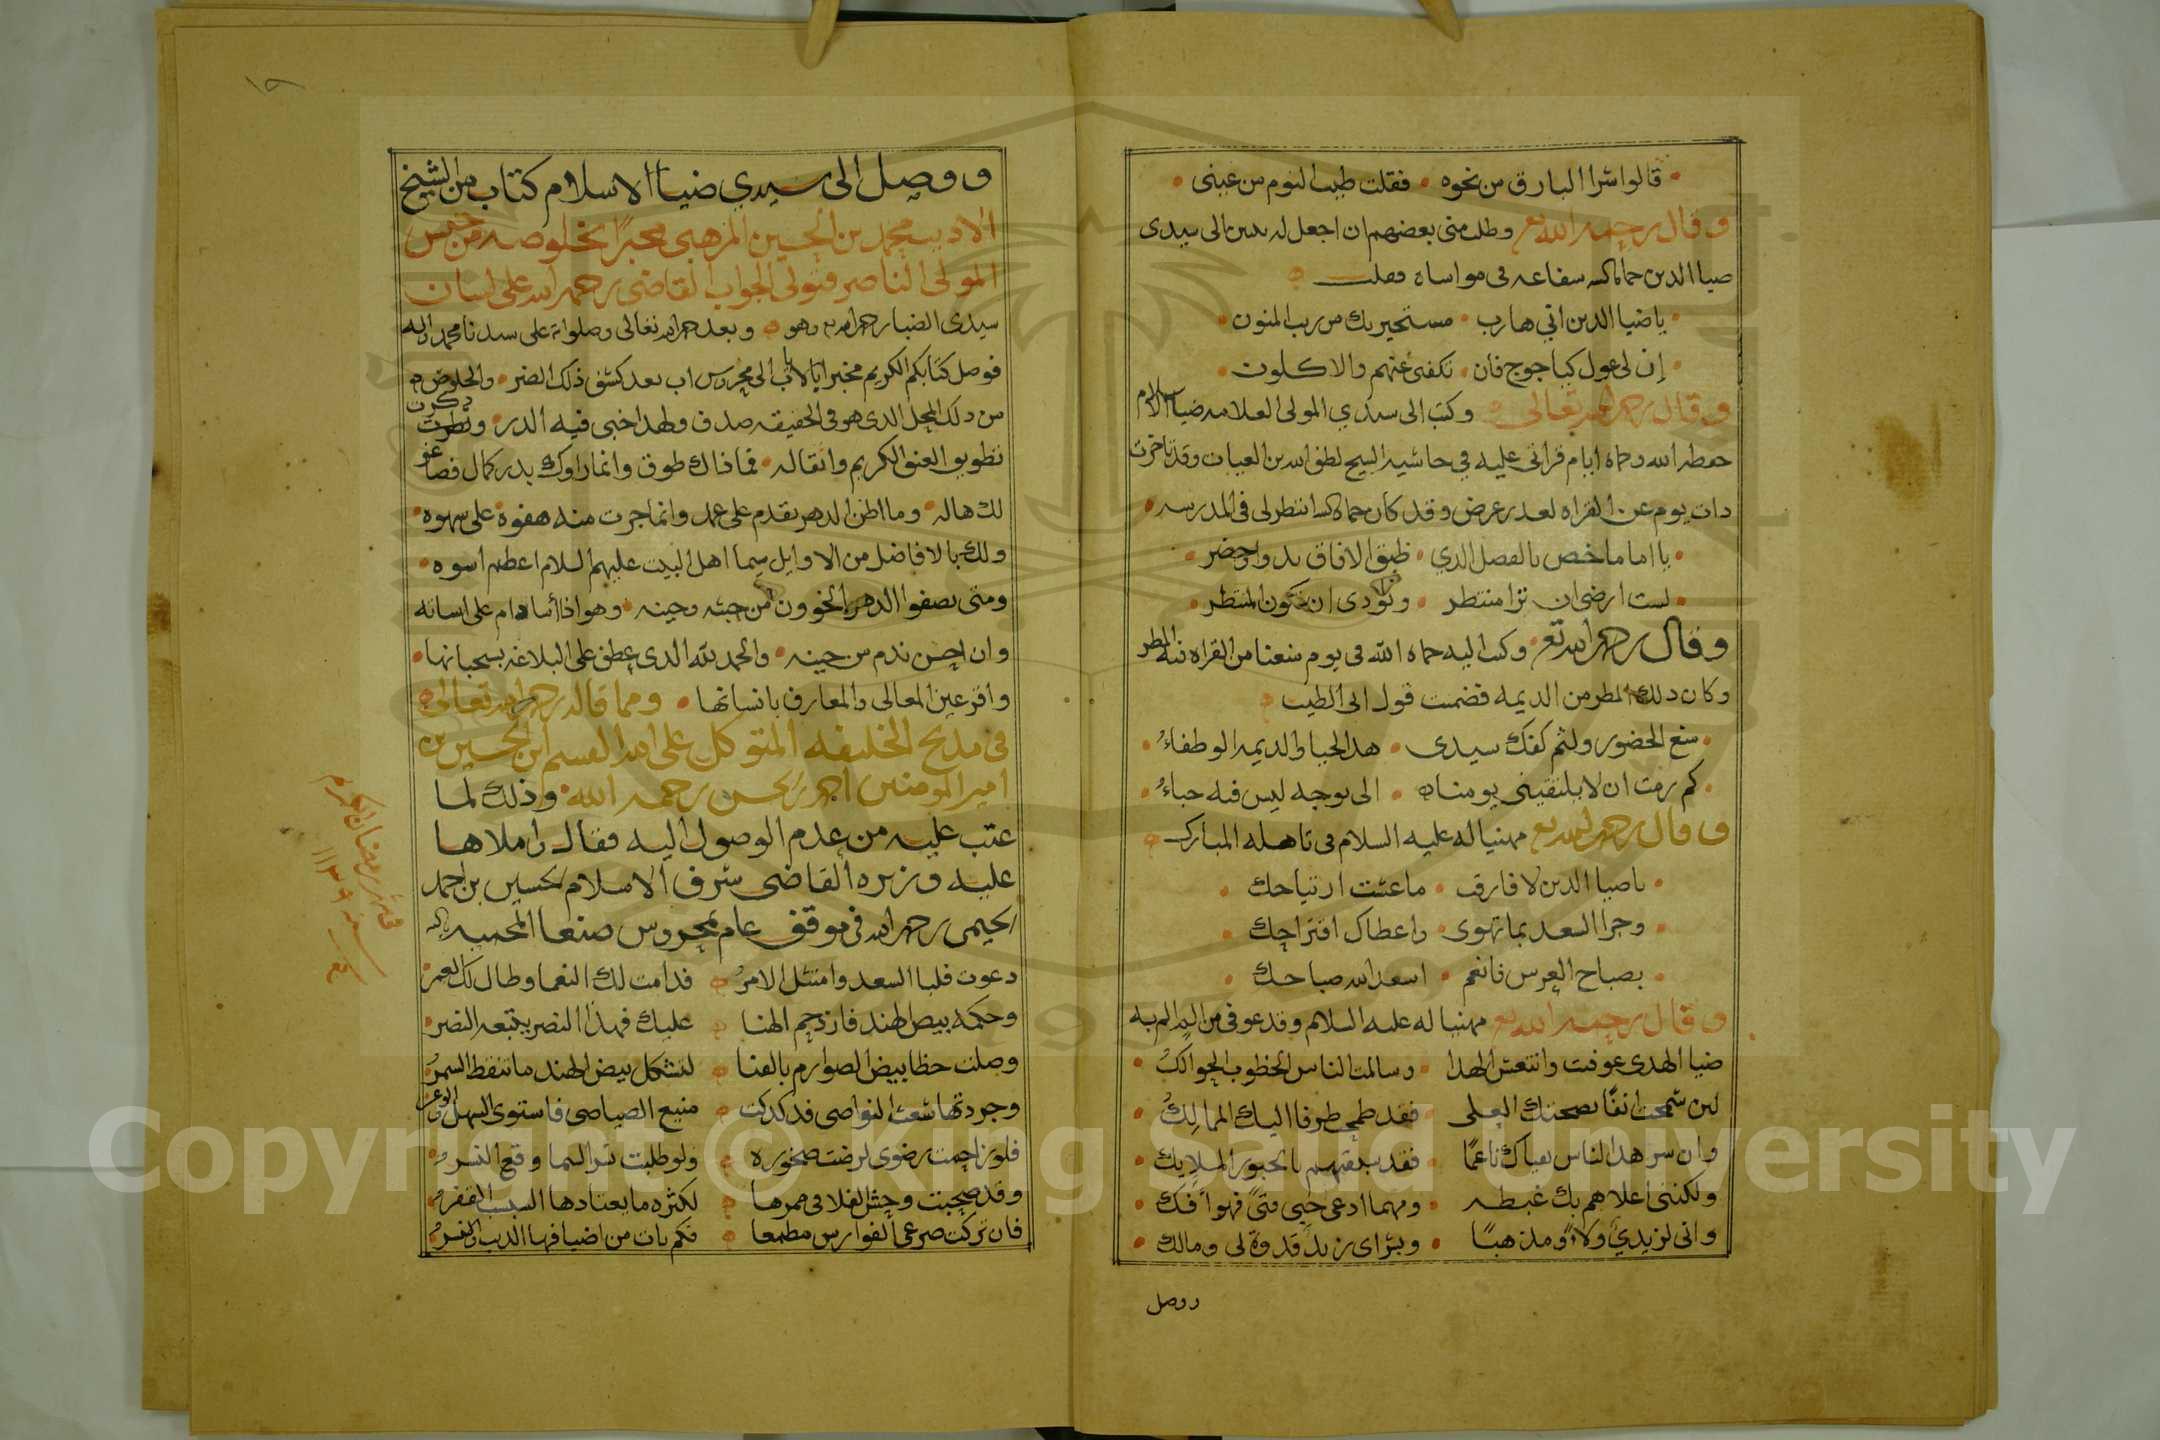 قالوا شرا البارق من نحوه • فقلت طيب النوم من عيني
وقال رحمه الله تع وطلب مني بعضهم ان اجعل له بيتين الى سيدي
ضيا الدين حماه الله شفاعه في مواساه فقلت
يا ضيا الدين اني هارب • مستجير بك من ريب المنون
إن لي عول كياجوج فان • تكفني عنهم والا كلوت
وقال رحمه الله تعالى وكتب الى سيدي المولى العلامه ضيا الاسلام
حفظه الله وحماه ايام قراتي عليه في حاشية الشيخ لطف الله بن الغياث وقد تاخرت
ذات يوم عن القراه لعذر عرض وقد كان حماه الله انتظرني في المدرسه
يا اماما خص بالفضل الذي • طبق الافاق بدو وحضر
لست ارضى ان ترا منتظر • وتؤدى ان تكون المنتظر
وقال رحمه الله تع وكتب اليه حماه الله في يوم منعنا من القراه فيه المطر
وكان ذلك المطر من الديمه فضمنت قول ابي الطيب
منع الحضور ولثم كفك سيدي • هذا الحيا والديمه الوطفاءُ
كم رمت ان لا يلتقيني يومنا • الى بوجه ليس فيه حياءُ
وقال رحمه الله تع مهنيا له عليه السلام في تاهله المبارك
يا ضيا الدين لا فارق • ما عشت ارتياحك
وجرا السعد بما تهوى • واعطاك اقتراحك
بصباح العرس فانعم • اسعد الله صباحك
وقال رحمه الله تع مهنيا له عليه السلام وقد عوفي من الم الم به
ضيا الهدى عوفيت وانتعش الهدا • وسالمت الناس الخطوب الحوالكُ
لئن شمخت انفًا بصحتك العلى • فقد طمحى طرفا اليك الممالكُ
وان سر هذا الناس بقياك ناعمًا • فقد سبقتهم بالحبور الملايك
ولكنني اعلاهم بك غبطه • ومهما ادعى حبي فتىً فهو أفك
واني لزيدي ولاءً ومذهبًا • وبئراى زيد قدوة لي ومالك
ووصل
ووصل الى سيدي ضيا الاسلام كتاب من الشيخ
الاديب محمد بن الحسين المرهبي مخبرًا بخلوصه من حبس
المولى الناصر فتولى الجواب القاضي رحمه الله على لسان
سيدي الضيا رحمه الله وهو وبعد حمد الله تعالى وصلواته على سيدنا محمد واله
فوصل كتابكم الكريم مخبرا بالاياب الى محروس اب بعد كشف ذلك الضر • والخلوص
من ذلك المحل الذي هو في الحقيقه صدف ولهذا اختبى فيه الدر • وذكرت
تطويق العنق الكريم واثقاله • فما ذاك طوق وانما راوك بدر كمال فصاغو
لك هاله • وما اظن الدهر يقدم على عمد وانما جرت منه هفوه على سهوه
ولك بالافاضل من الاوايل سيما اهل البيت عليهم السلام اعظم اسوه
ومتى يصفوا الدهر الخوون من خبثه وحينه • وهو اذا أسا دام على اساته
وان احسن ندم من حينه • والحمد لله الذي عطف على البلاغه بسحبانها
واقر عين المعالي والمعارف بانسانها • ومما قاله رحمه الله تعالى
في مديح الخليفه المتوكل على الله القسم ابن الحسين بن
امير المومنين احمد بن الحسن رحمه الله • وذلك لما
عتب عليه من عدم الوصول اليه فقال واملاها
عليه وزيره القاضي شرف الاسلام الحسين بن احمد
الحيمي رحمه الله في موقف عام بمحروس صنعا المحميه بالله
دعوت فلبا السعد وامتثل الامرُ فدامت لك النعما وطال لك العمر
وحكمه بيض الهند فازدحم الهنا عليك فهذا النصر يتبعه النصر
وصلت حظا بيض الصوارم بالقنا لتشكل بيض الهند ما تنقط السمرُ
وجردتها شعث النواصي فدكدكت منيع الصياصي فاستوى السهل والوعر
فلو زاحمت رضوى لرضت صخوره ولو طلبت نسر السما وقع النسر
وقد صحبت وحش الفلا في ممرها لكثره ما يعتادها السبسب القفر
فان تركت صرعى الفوارس مطعما فكم بات من اضيافها الذيب والنسرُ
شهر رمضان الكريم
سنه ١١٣٤